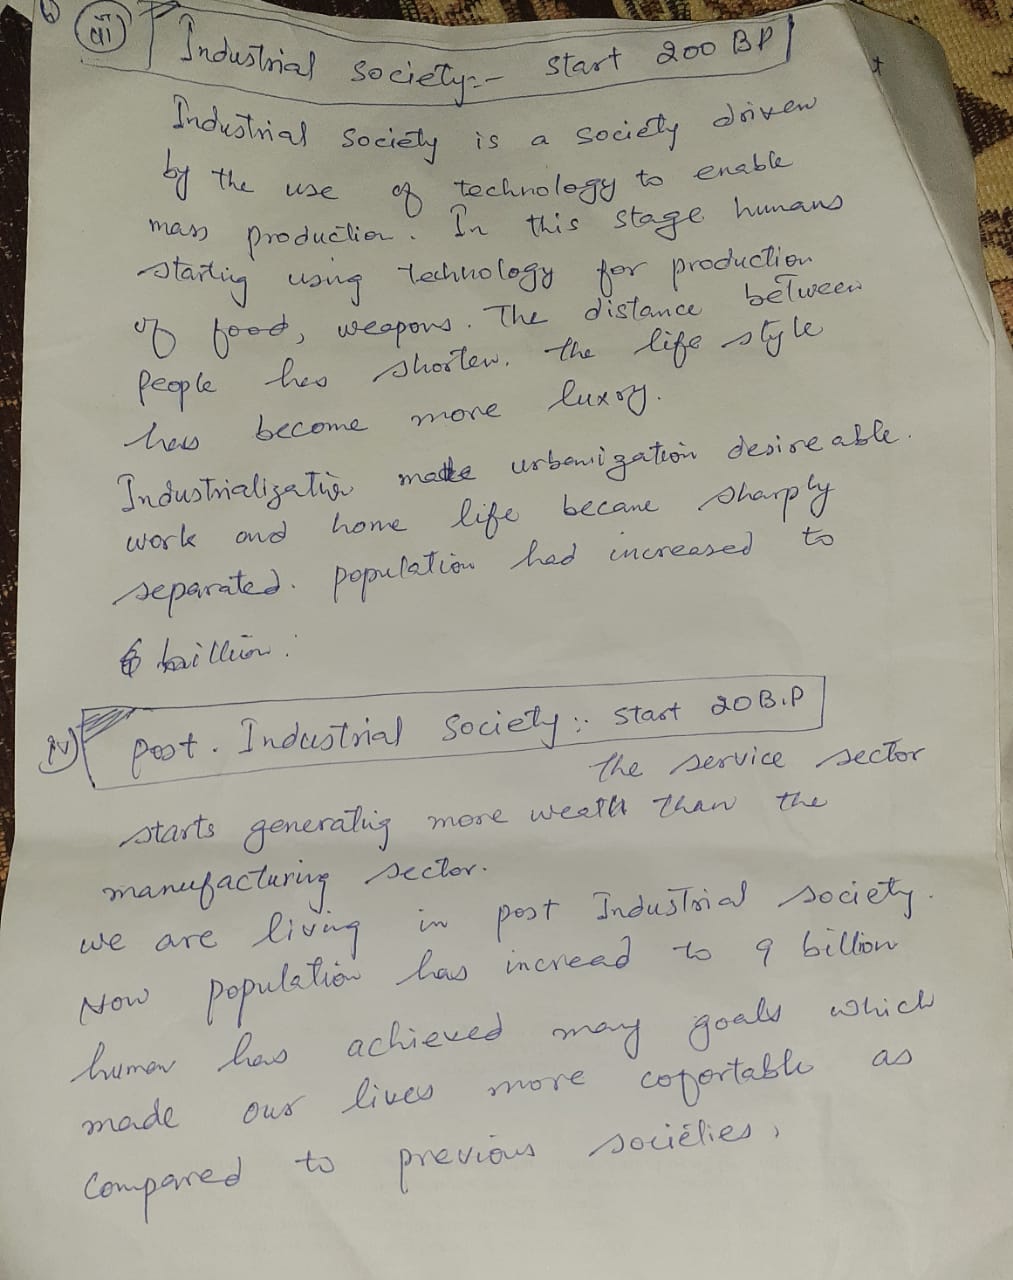 iii Industrial society:- start 200 BP
Industrial society is a society driven
by the use of technology to enable
mass production. In this stage humans
starting using technology for production
of food, weapons. The distance between
people has shorten. the life style
has become more luxory.
Industrialization made urbanization desireable.
work and home life became sharply
separated. population had increased to
6 billion.
IV) post. Industrial society:. start 20 B.P
the service sector
starts generating more wealth than the
manufacturing sector.
we are living in post Industrial society.
Now population has incread to 9 billion
human has achieved many goals which
made our lives more cofortable as
compared to previous societies,